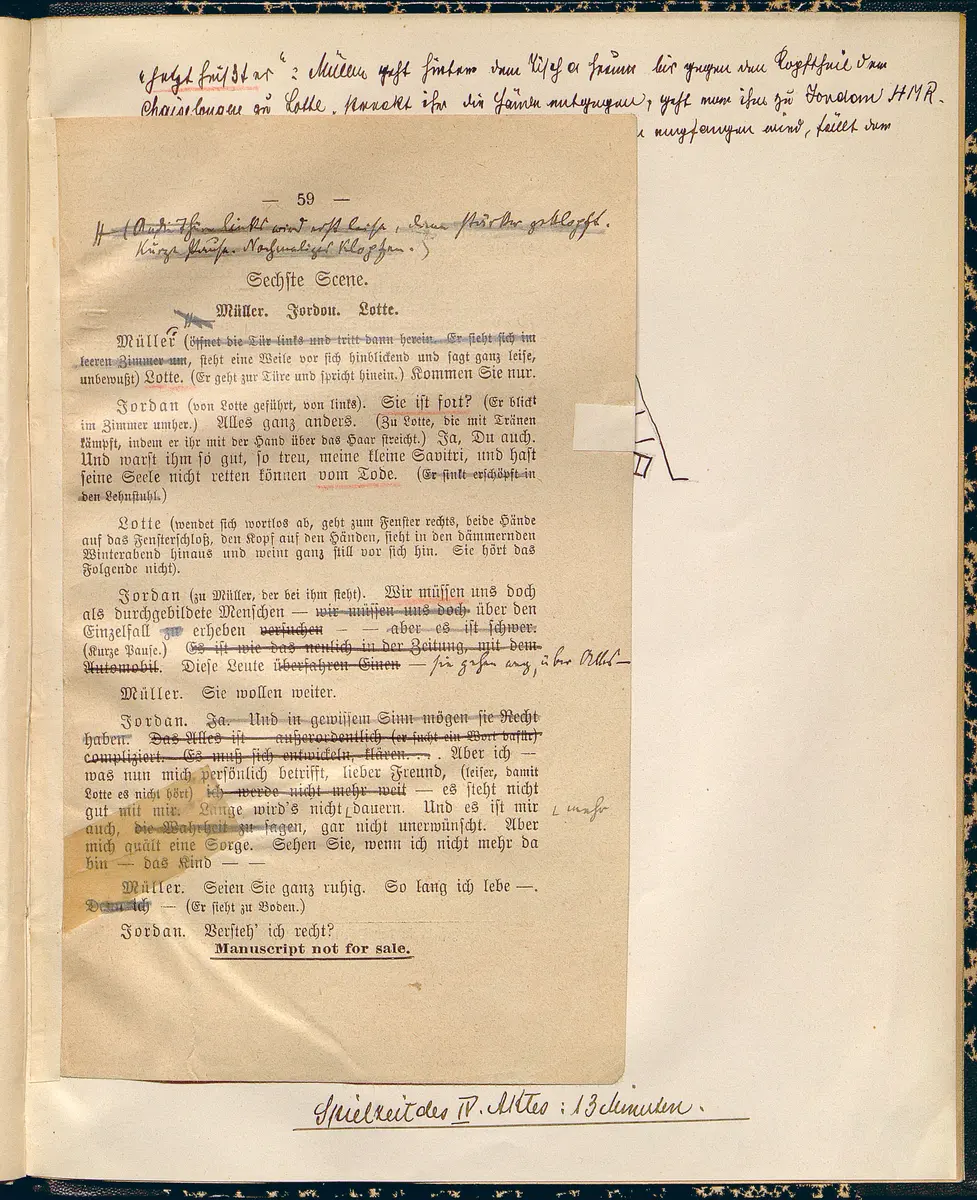 "Jetzt heißt es": Müller geht hinter dem Tisch herum bis gegen den Kopftheil der
Chaiselongue zu Lotte, streckt ihr die Hände entgegen, geht nun ihm zu Jordan HMR.
empfangen wird, fällt dem
— 59 —
(An die Thüre links wird erst leise, dann stärker geklopft.
Kurze Pause. Nochmaliges Klopfen.)
Sechste Scene.
Müller. Jordon. Lotte.
Müller (öffnet die Tür links und tritt dann herein. Er sieht sich im
leeren Zimmer um, steht eine Weile vor sich hinblickend und sagt ganz leise,
unbewußt) Lotte. (Er geht zur Türe und spricht hinein.) Kommen Sie nur.
Jordan (von Lotte geführt, von links). Sie ist fort? (Er blickt
im Zimmer umher.) Alles ganz anders. (Zu Lotte, die mit Tränen
kämpft, indem er ihr mit der Hand über das Haar streicht.) Ja, Du auch.
Und warst ihm so gut, so treu, meine kleine Savitri, und hast
seine Seele nicht retten können vom Tode. (Er sinkt erschöpft in
den Lehnstuhl.)
Lotte (wendet sich wortlos ab, geht zum Fenster rechts, beide Hände
auf das Fensterschloß, den Kopf auf den Händen, sieht in den dämmernden
Winterabend hinaus und weint ganz still vor sich hin. Sie hört das
Folgende nicht).
Jordan (zu Müller, der bei ihm steht). Wir müssen uns doch
als durchgebildete Menschen — wir müssen uns doch über den
Einzelfall zu erheben versuchen — — aber es ist schwer.
(Kurze Pause.) Es ist wie das neulich in der Zeitung, mit dem
Automobil. Diese Leute überfahren Einen — sie gehen weg, über Alles —
Müller. Sie wollen weiter.
Jordan. Ja. Und in gewissem Sinn mögen sie Recht
haben. Das Alles ist — außerordentlich (er sucht ein Wort dafür)
compliziert. Es muß sich entwickeln, klären. . . . Aber ich —
was nun mich persönlich betrifft, lieber Freund, (leiser, damit
Lotte es nicht hört) ich werde nicht mehr weit — es steht nicht
gut mit mir. Lange wird's nicht dauern. Und es ist mir mehr
auch, die Wahrheit zu sagen, gar nicht unerwünscht. Aber
mich quält eine Sorge. Sehen Sie, wenn ich nicht mehr da
bin — das Kind — —
Müller. Seien Sie ganz ruhig. So lang ich lebe —.
Denn ich — (Er sieht zu Boden.)
Jordan. Versteh' ich recht?
Manuscript not for sale.
Spielzeit des IV. Aktes: 13 Minuten.